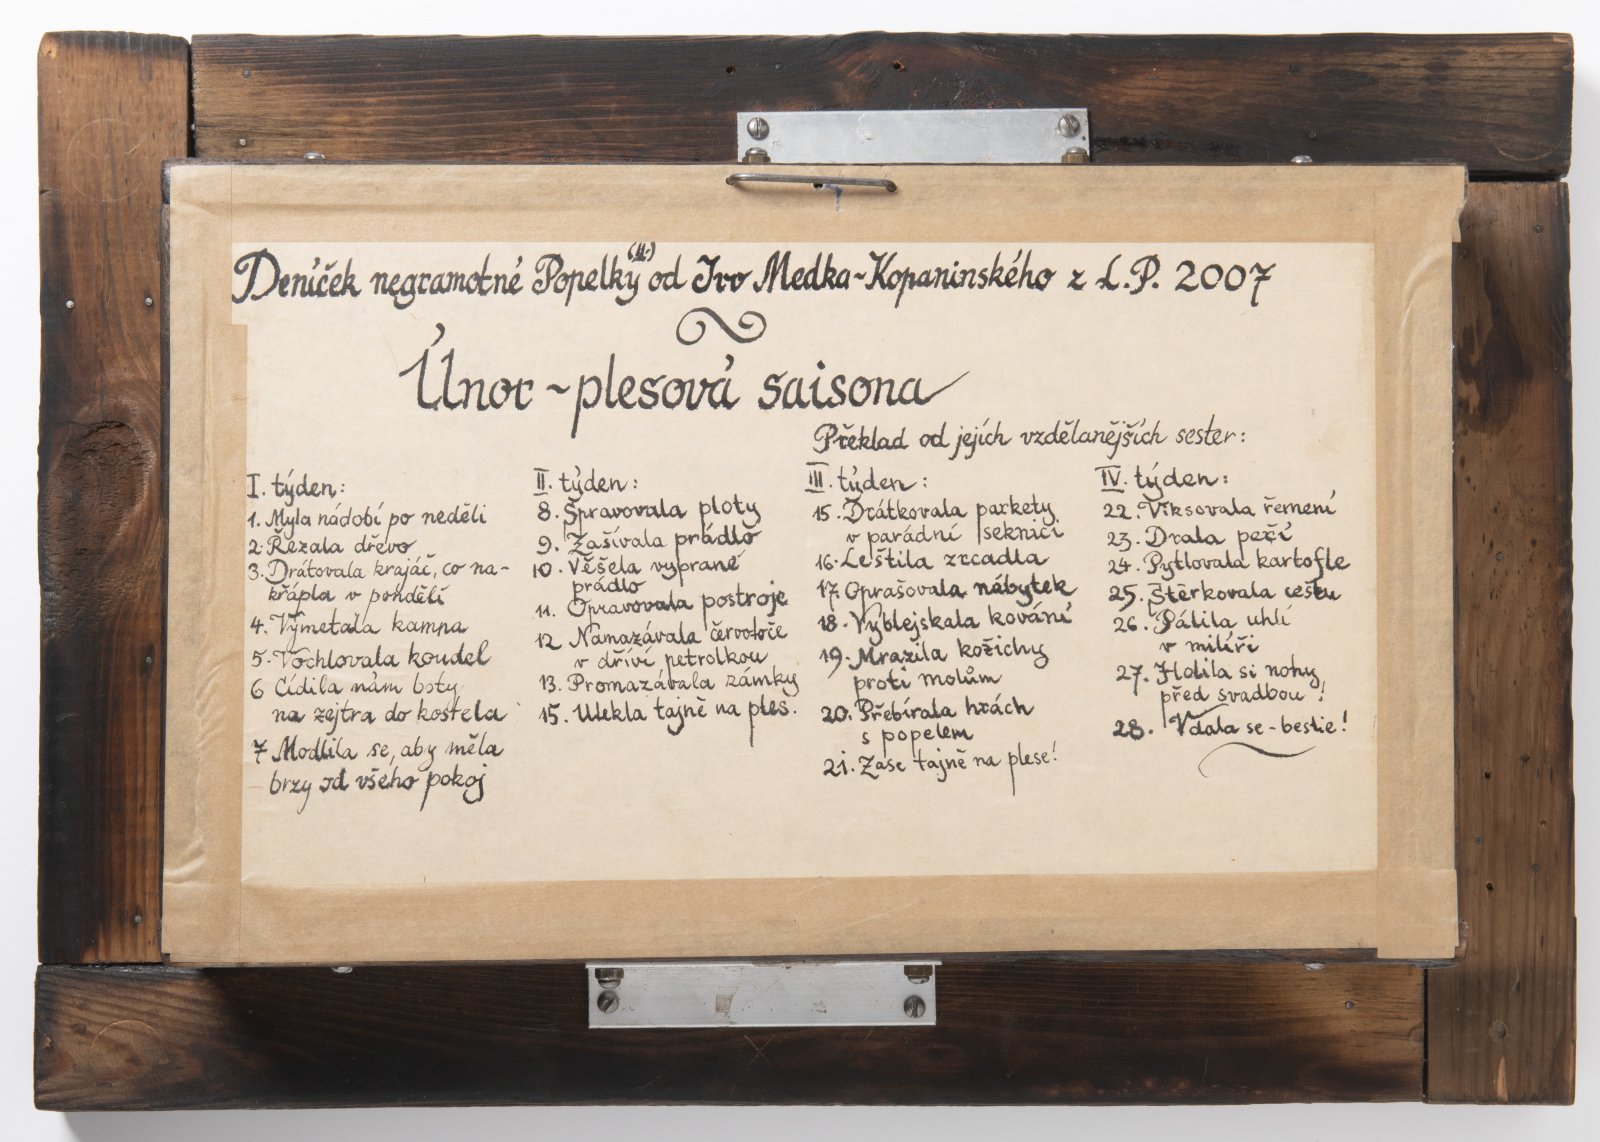 Deníček negramotné Popelky (II.) od Ivo Medka-Kopaninského z L.P. 2007
Únor ~ plesová saisona
Překlad od jejích vzdělanějších sester:
I. týden:
1. Myla nádobí po neděli
2. Řezala dřevo
3. Drátovala krajáč, co na-
křápla v pondělí
4. Vymetala kampa
5. Vochlovala koudel
6 Cídila nám boty
na zejtra do kostela
7 Modlila se, aby měla
brzy od všeho pokoj
II. týden:
8. Spravovala ploty
9. Zašívala prádlo
10. Věšela vyprané
prádlo
11. Opravovala postroje
12 Namazávala červotoče
v dříví petrolkou
13. Promazávala zámky
15. Utekla tajně na ples.
III. týden:
15. Drátkovala parkety
v parádní seknici
16. Leštila zrcadla
17. Oprašovala nábytek
18. Vyblejskala kování
19. Mrazila kožichy
proti molům
20. Přebírala hrách
s popelem
21. Zase tajně na plese!
IV. týden:
22. Viksovala řemení
23. Drala peří
24. Pytlovala kartofle
25. Štěrkovala cestu
26. Pálila uhlí
v milíři
27. Holila si nohy
před svadbou!
28. Vdala se - bestie!